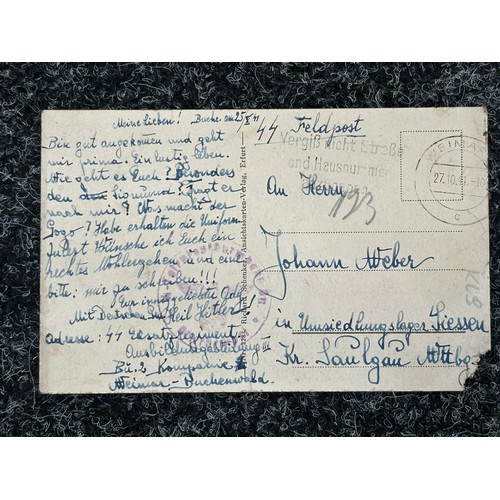 Meine Lieben! Buche am 25/X 41
Bin gut angekommen und geht
mir prima. Ein lustig Leben.
Wie geht es Euch? Besonders
den Sigmund? Fragt er
nach mir? Was macht der
Gogo? Habe erhalten die Uniform.
Zuletzt Wünsche ich Euch ein
rechtes Wohlergehen und eine
bitte: mir zu schreiben!!!
Euer inniggeliebter
Mit Deutschen Gruß Heil Hitler!
Adresse: SS Ersatzregiment
Ausbildungsabteilung III
Bü. 2 Kompanie
Weimar-Buchenwald
Schenker, Ansichtskarten-Verlag, Erfurt
SS Feldpost
Vergiß nicht Straße
und Hausnummer
WEIMAR
27.10.41
c
An Herrn
193
Johann Weber
in Umsiedlungslager Siessen
Kr. Saulgau Wttbg